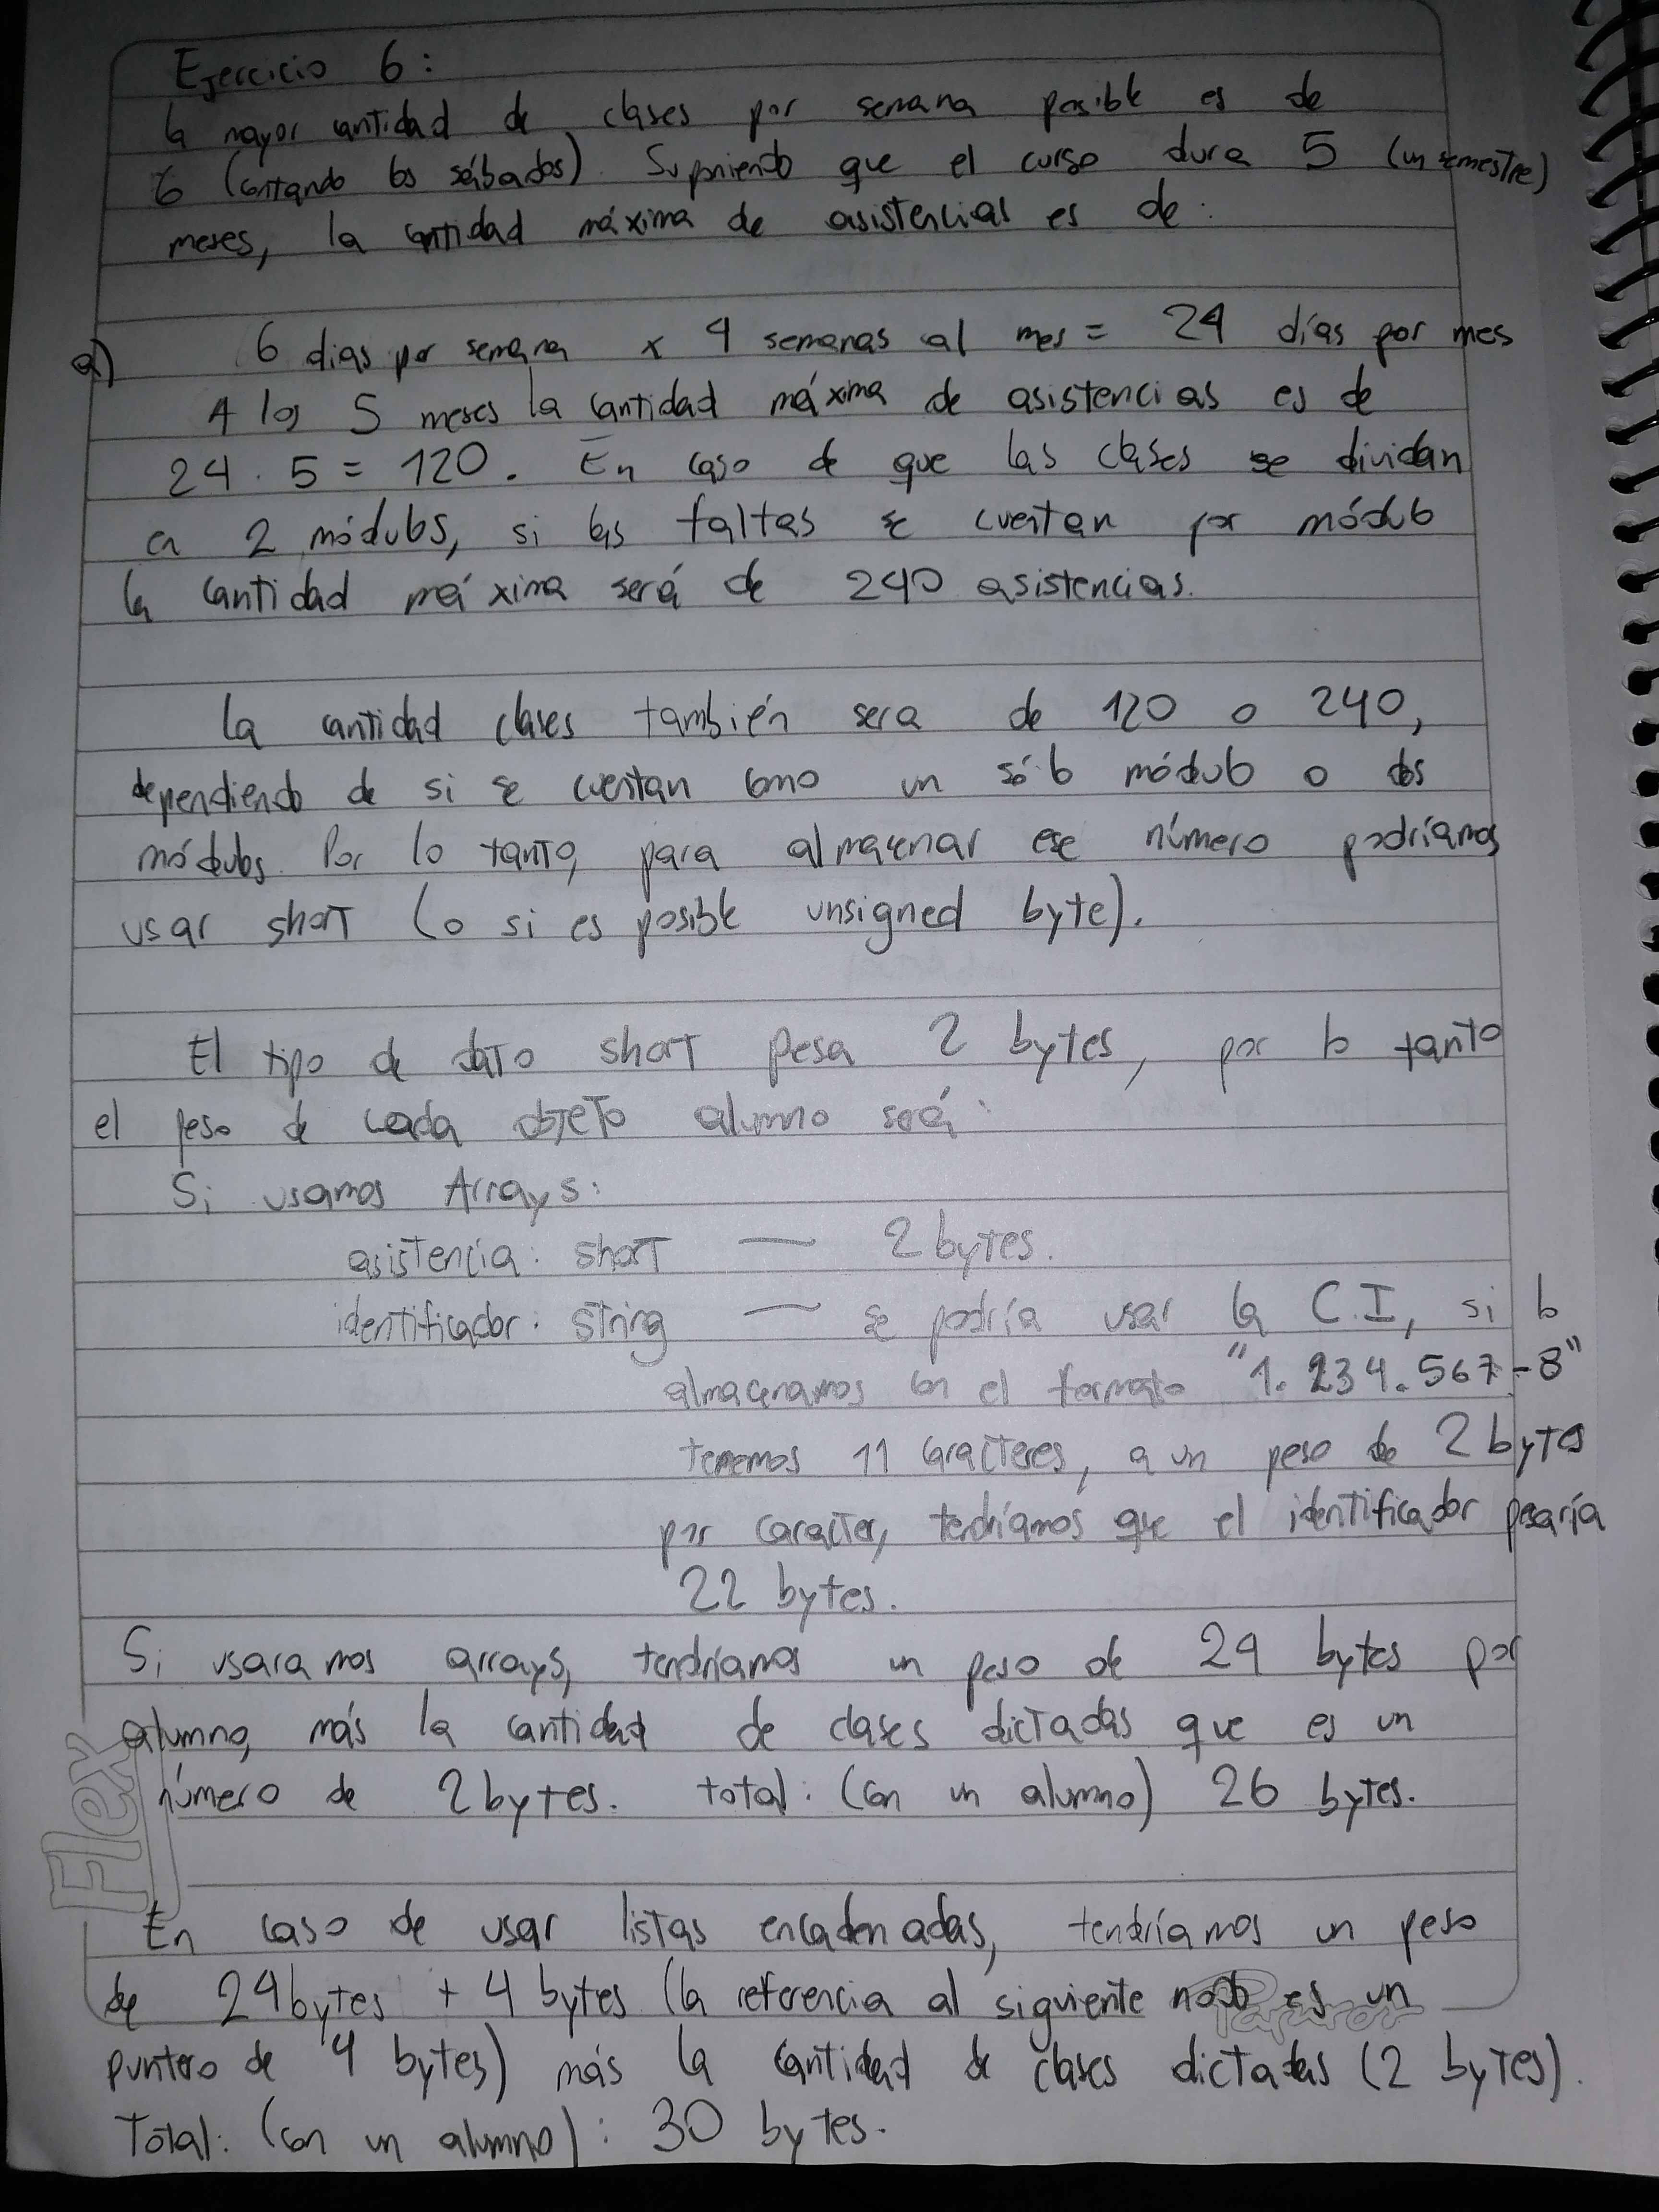 Ejercicio 6:
la mayor cantidad de clases por semana posible es de
6 (contando los sábados). Suponiendo que el curso dura 5 (un semestre)
meses, la cantidad máxima de asistencias es de:
a) 6 días por semana x 4 semanas al mes = 24 días por mes
A los 5 meses la cantidad máxima de asistencias es de
24 . 5 = 120. En caso de que las clases se dividan
en 2 módulos, si las faltas se cuentan por módulo
la cantidad máxima será de 240 asistencias.
La cantidad clases también sera de 120 o 240,
dependiendo de si se cuentan como un sólo módulo o dos
módulos. Por lo tanto, para almacenar ese número podríamos
usar short (o si es posible unsigned byte).
El tipo de dato short pesa 2 bytes, por lo tanto
el peso de cada objeto alumno será:
Si usamos Arrays:
asistencia: short — 2 bytes.
identificador: string — se podría usar la C.I, si lo
almacenamos con el formato "1.234.567-8"
tenemos 11 caracteres, a un peso de 2 bytes
por caracter, tendríamos que el identificador pesaría
22 bytes.
Si usaramos arrays, tendríamos un peso de 24 bytes por
alumno, más la cantidad de clases dictadas que es un
número de 2 bytes. total: (con un alumno) 26 bytes.
Flex
En caso de usar listas encadenadas, tendríamos un peso
de 24 bytes + 4 bytes (la referencia al siguiente nodo es un
Papiros
puntero de 4 bytes) más la cantidad de clases dictadas (2 bytes).
Total: (con un alumno): 30 bytes.